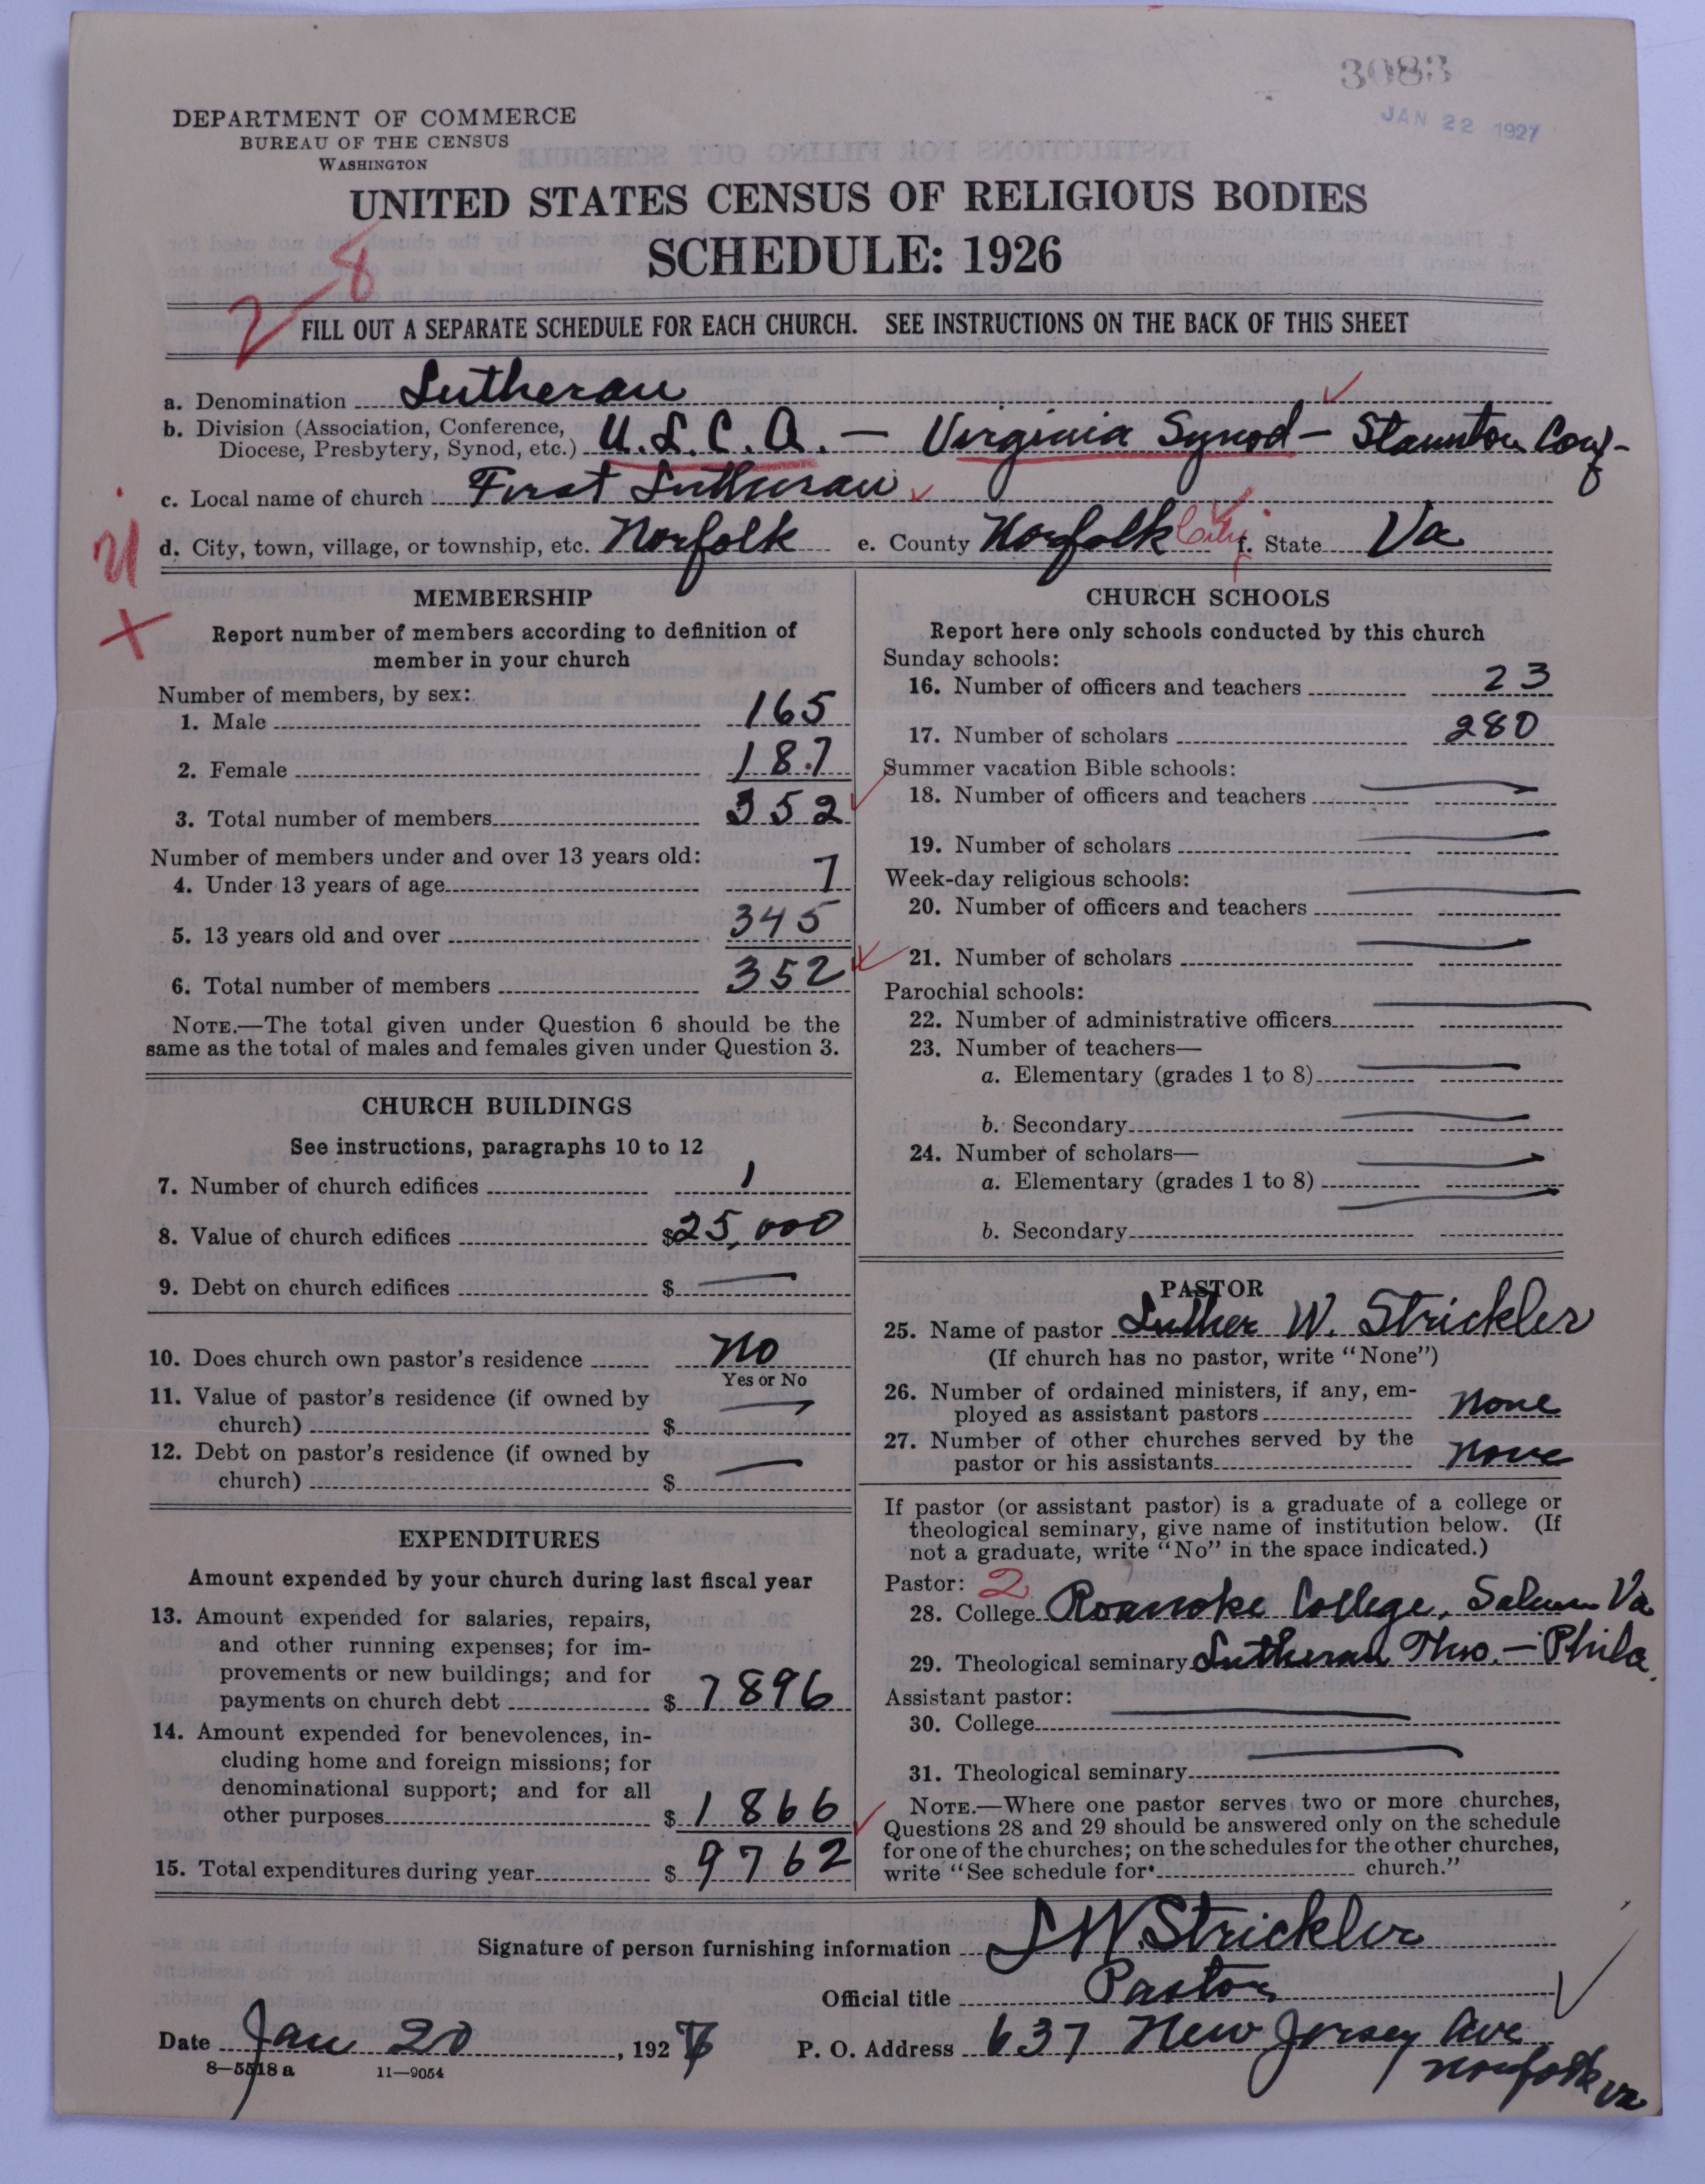 3083
JAN 22 1927
DEPARTMENT OF COMMERCE
BUREAU OF THE CENSUS
WASHINGTON
UNITED STATES CENSUS OF RELIGIOUS BODIES
SCHEDULE: 1926
2 8
FILL OUT A SEPARATE SCHEDULE FOR EACH CHURCH. SEE INSTRUCTIONS ON THE BACK OF THIS SHEET
a. Denomination Lutheran
b. Division (Association, Conference,
Diocese, Presbytery, Synod, etc.) U.L.C.A. — Virginia Synod — Staunton Conf-
c. Local name of church First Lutheran
d. City, town, village, or township, etc. Norfolk e. County Norfolk City f. State Va
MEMBERSHIP
Report number of members according to definition of
member in your church
Number of members, by sex:
1. Male 165
2. Female 187
3. Total number of members 352
Number of members under and over 13 years old:
4. Under 13 years of age 7
5. 13 years old and over 345
6. Total number of members 352
NOTE.—The total given under Question 6 should be the
same as the total of males and females given under Question 3.
CHURCH BUILDINGS
See instructions, paragraphs 10 to 12
7. Number of church edifices 1
8. Value of church edifices $25,000
9. Debt on church edifices $ —
10. Does church own pastor's residence No
Yes or No
11. Value of pastor's residence (if owned by
church) $ —
12. Debt on pastor's residence (if owned by
church) $ —
EXPENDITURES
Amount expended by your church during last fiscal year
13. Amount expended for salaries, repairs,
and other running expenses; for im-
provements or new buildings; and for
payments on church debt $ 7896
14. Amount expended for benevolences, in-
cluding home and foreign missions; for
denominational support; and for all
other purposes $ 1866
15. Total expenditures during year $ 9762
CHURCH SCHOOLS
Report here only schools conducted by this church
Sunday schools:
16. Number of officers and teachers 23
17. Number of scholars 280
Summer vacation Bible schools:
18. Number of officers and teachers —
19. Number of scholars —
Week-day religious schools:
20. Number of officers and teachers —
21. Number of scholars —
Parochial schools:
22. Number of administrative officers —
23. Number of teachers—
a. Elementary (grades 1 to 8) —
b. Secondary —
24. Number of scholars—
a. Elementary (grades 1 to 8) —
b. Secondary —
PASTOR
25. Name of pastor Luther W. Strickler
(If church has no pastor, write "None")
26. Number of ordained ministers, if any, em-
ployed as assistant pastors None
27. Number of other churches served by the
pastor or his assistants None
If pastor (or assistant pastor) is a graduate of a college or
theological seminary, give name of institution below. (If
not a graduate, write "No" in the space indicated.)
Pastor: 2
28. College Roanoke College, Salem Va
29. Theological seminary Lutheran Theo. — Phila.
Assistant pastor:
30. College —
31. Theological seminary —
NOTE.—Where one pastor serves two or more churches,
Questions 28 and 29 should be answered only on the schedule
for one of the churches; on the schedules for the other churches,
write "See schedule for church."
Signature of person furnishing information L W. Strickler
Official title Pastor
Date Jan 20, 1927 P. O. Address 637 New Jersey Ave
Norfolk Va
8—5518 a 11—9054